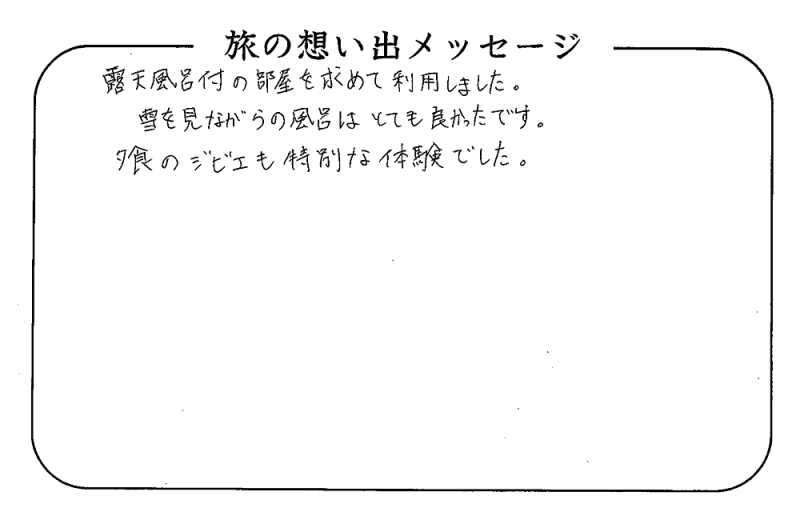 旅の想い出メッセージ
露天風呂付の部屋を求めて利用しました。
雪を見ながらの風呂はとても良かったです。
夕食のジビエも特別な体験でした。